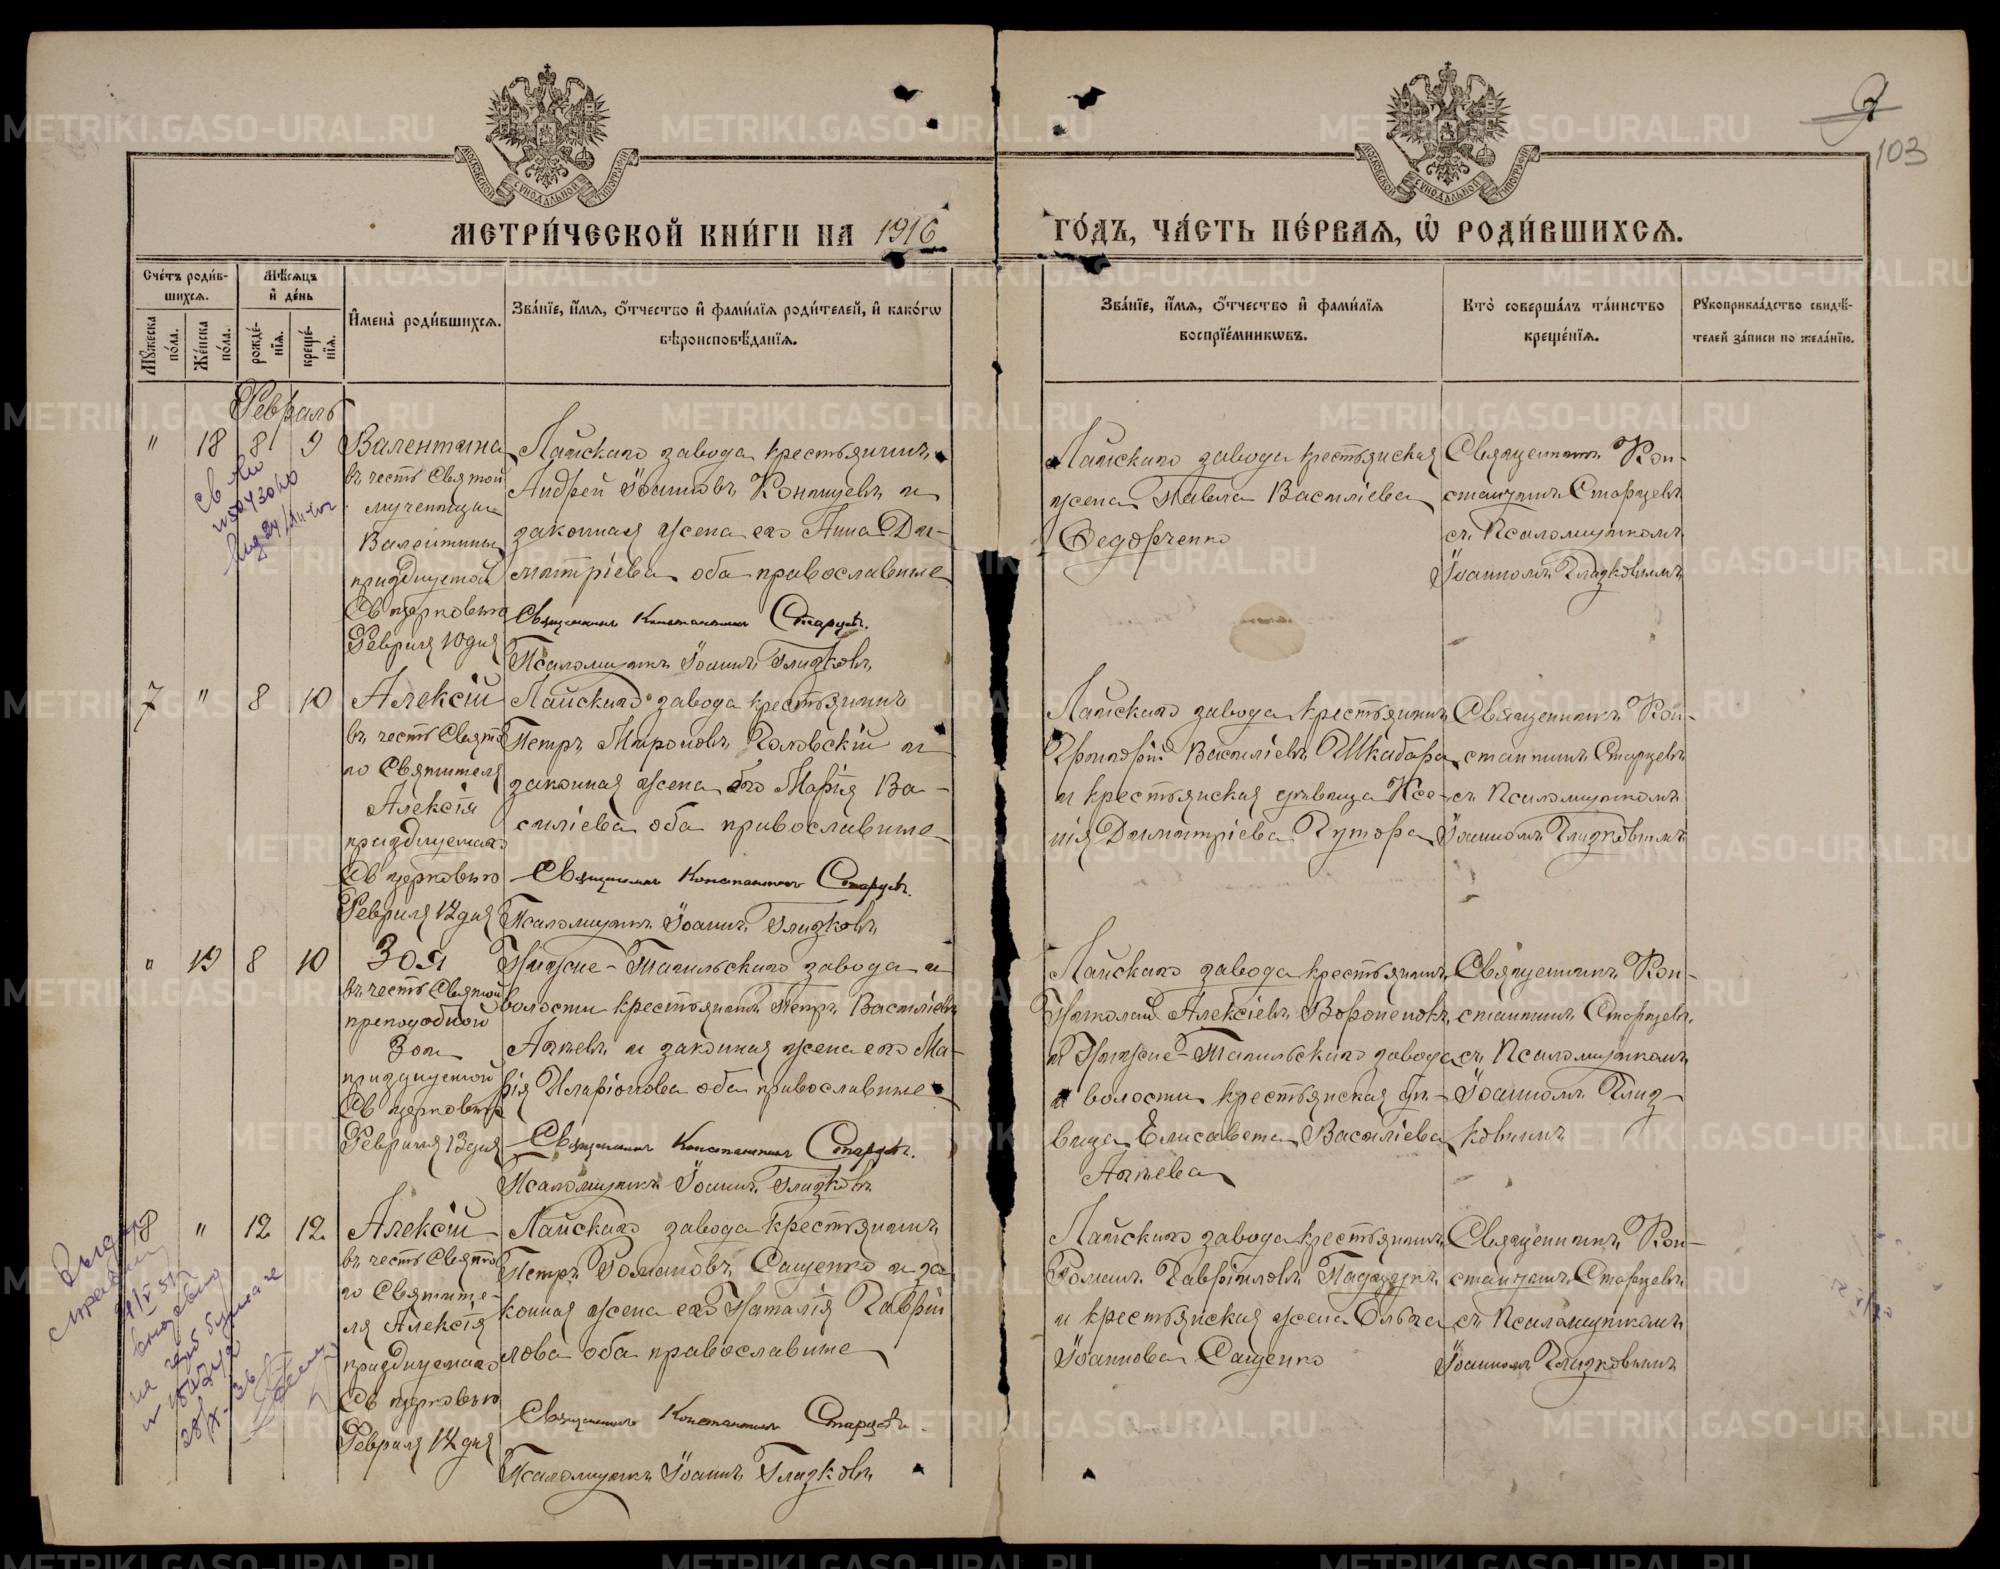 103
МЕТРИ́ЧЕСКОЙ КНИ́ГИ НА 1916
ГО́ДЪ, ЧА́СТЬ ПЕ́РВАЯ, Ѽ РОДИ́ВШИХСЯ.
МОСКОВСКОЙ СѴНОДАЛЬНОЙ ТИПОГРАФІИ
МОСКОВСКОЙ СѴНОДАЛЬНОЙ ТИПОГРАФІИ
Сче́тъ роди́в-
шихся.
Мѣ́сяцъ
и҆ де́нь
Мꙋ́жеска по́ла.
Же́нска по́ла.
рожде́-нїѧ.
креще́-нїѧ.
И҆мена̀ роди́вшихся.
Зва́нїе, и҆́мя, ѻ҆́тчество и҆ фами́лїя роди́телей, и҆ како́гѡ
вѣроисповѣ́данїя.
Зва́нїе, и҆́мя, ѻ҆́тчество и҆ фами́лїя
воспрїе́мникѡвъ.
Кто̀ соверша́лъ та́инство
креще́нїя.
Рꙋкоприкла́дство свидѣ́-
телей за́писи по жела́нїю.
Февраль
" 18 8 9
Валентина
въ честь Святой
мученицы
Валентины
празднуемой
Св церковью
Февраля 10 дня
Лайскаго завода крестьянинъ
Андрей Іоанновъ Конищевъ и
законная жена его Анна Ди-
митріева оба православные
Священникъ Константинъ Старцевъ.
Псаломщикъ Іоаннъ Гладковъ
Лайскаго завода крестьянская
жена Павла Василіева
Федорченко
Священникъ Кон-
стантинъ Старцевъ
съ Псаломщикомъ
Іоанномъ Гладковымъ
7 " 8 10
Алексій
въ честь Свято
го Святителя
Алексія
празднуемаго
Св церковью
Февраля 12 дня
Лайскаго завода крестьянинъ
Петръ Мироновъ Головскій и
законная жена его Марія Ва-
силіева оба православные
Священникъ Константинъ Старцевъ.
Псаломщикъ Іоаннъ Гладковъ
Лайскаго завода крестьянинъ
Василіевъ Шкабара
и крестьянская дѣвица Ксе-
нія Димитріева Гутора
Священникъ Кон-
стантинъ Старцевъ
съ Псаломщикомъ
Іоанномъ Гладковымъ
" 19 8 10
Зоя
въ честь Святой
преподобной
Зои
празднуемой
Св церковью
Февраля 13 дня
Нижне-Тагильскаго завода и
волости крестьянинъ Петръ Василіевъ
Агѣевъ и законная жена его Ма-
рія Иларіонова оба православные
Священникъ Константинъ Старцевъ.
Псаломщикъ Іоаннъ Гладковъ
Лайскаго завода крестьянинъ
Николай Алексіевъ Вороненокъ
и Нижне-Тагильскаго завода
и волости крестьянская дѣ-
вица Елисавета Василіева
Агѣева
Священникъ Кон-
стантинъ Старцевъ
съ Псаломщикомъ
Іоанномъ Глад-
ковымъ
8 " 12 12
Алексій
въ честь Свято
го Святите-
ля Алексія
празднуемаго
Св церковью
Февраля 12 дня
Лайскаго завода крестьянинъ
Петръ Романовъ Сащенко и за
конная жена его Наталія Гаврій
лова оба православные
Священникъ Константинъ Старцевъ
Псаломщикъ Іоаннъ Гладковъ
Лайскаго завода крестьянинъ
Романъ Гавріиловъ
и крестьянская жена Ольга
Іоаннова Сащенко
Священникъ Кон-
стантинъ Старцевъ
съ Псаломщикомъ
Іоанномъ Гладковымъ
METRIKI.GASO-URAL.RU